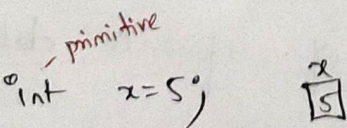 primitive
int x=5; x
5